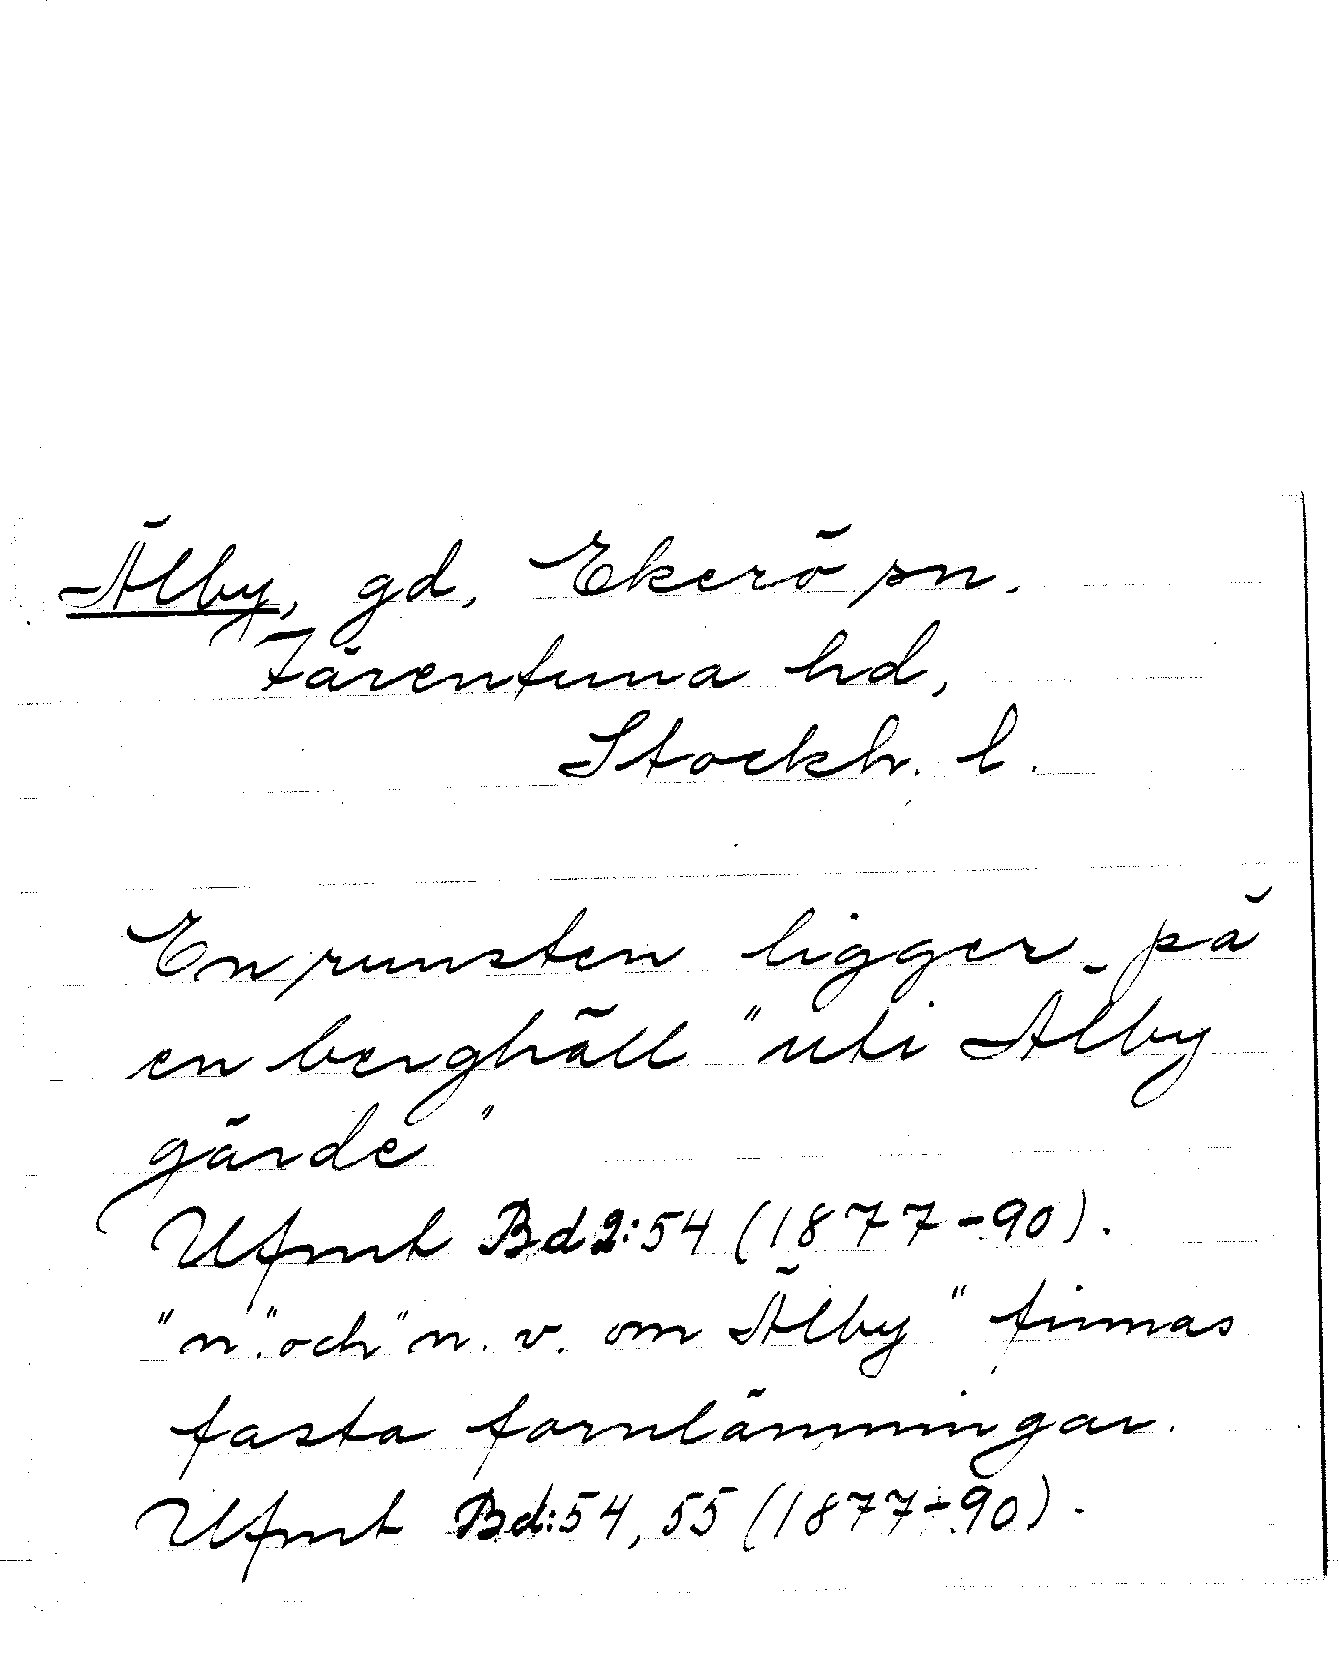 Älby, gd, Ekerö sn.
Färentuna hd,
Stockh. l.
En runsten ligger på
en berghäll "uti Älby
gärde"
Ufmt Bd 2:54 (1877-90).
"n." och "n. v. om Älby" finnas
fasta fornlämningar.
Ufmt Bd:54, 55 (1877-90).